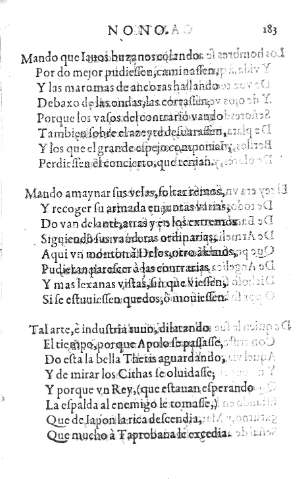 NONO. 183
Mando que la nos buzanos colando
Por do mejor pudiessen, caminassen,
Y las maromas de ancoras hallando
Debaxo de las ondas, las cortassen,
Porque los vasos del contrario vando
Tambien sobre el azeyte desuarassen,
Y los que el grande espejo componian,
Perdiessen el concierto, que tenian.
Mando amaynar sus velas, soltar remos,
Y recoger su armada en juntas varias,
Do van delante, atras y en los extremos
Siguiendo sus vanderas ordinarias,
Aqui vn monton à Delos, otro à Lemos,
Pudieran parescer à las contrarias
Y mas lexanas vistas, sin que viessen,
Si se estuuiessen quedos, ò mouiessen.
Tal arte, è industria tuuo, dilatando
El tiempo, porque Apolo se passasse,
Do esta la bella Thetis aguardando,
Y de mirar los Cithas se oluidasse;
Y porque vn Rey, (que estauan esperando
La espalda al enemigo le tomasse,)
Que de Iapon la rica descendia,
Que mucho à Taprobana le excedia.